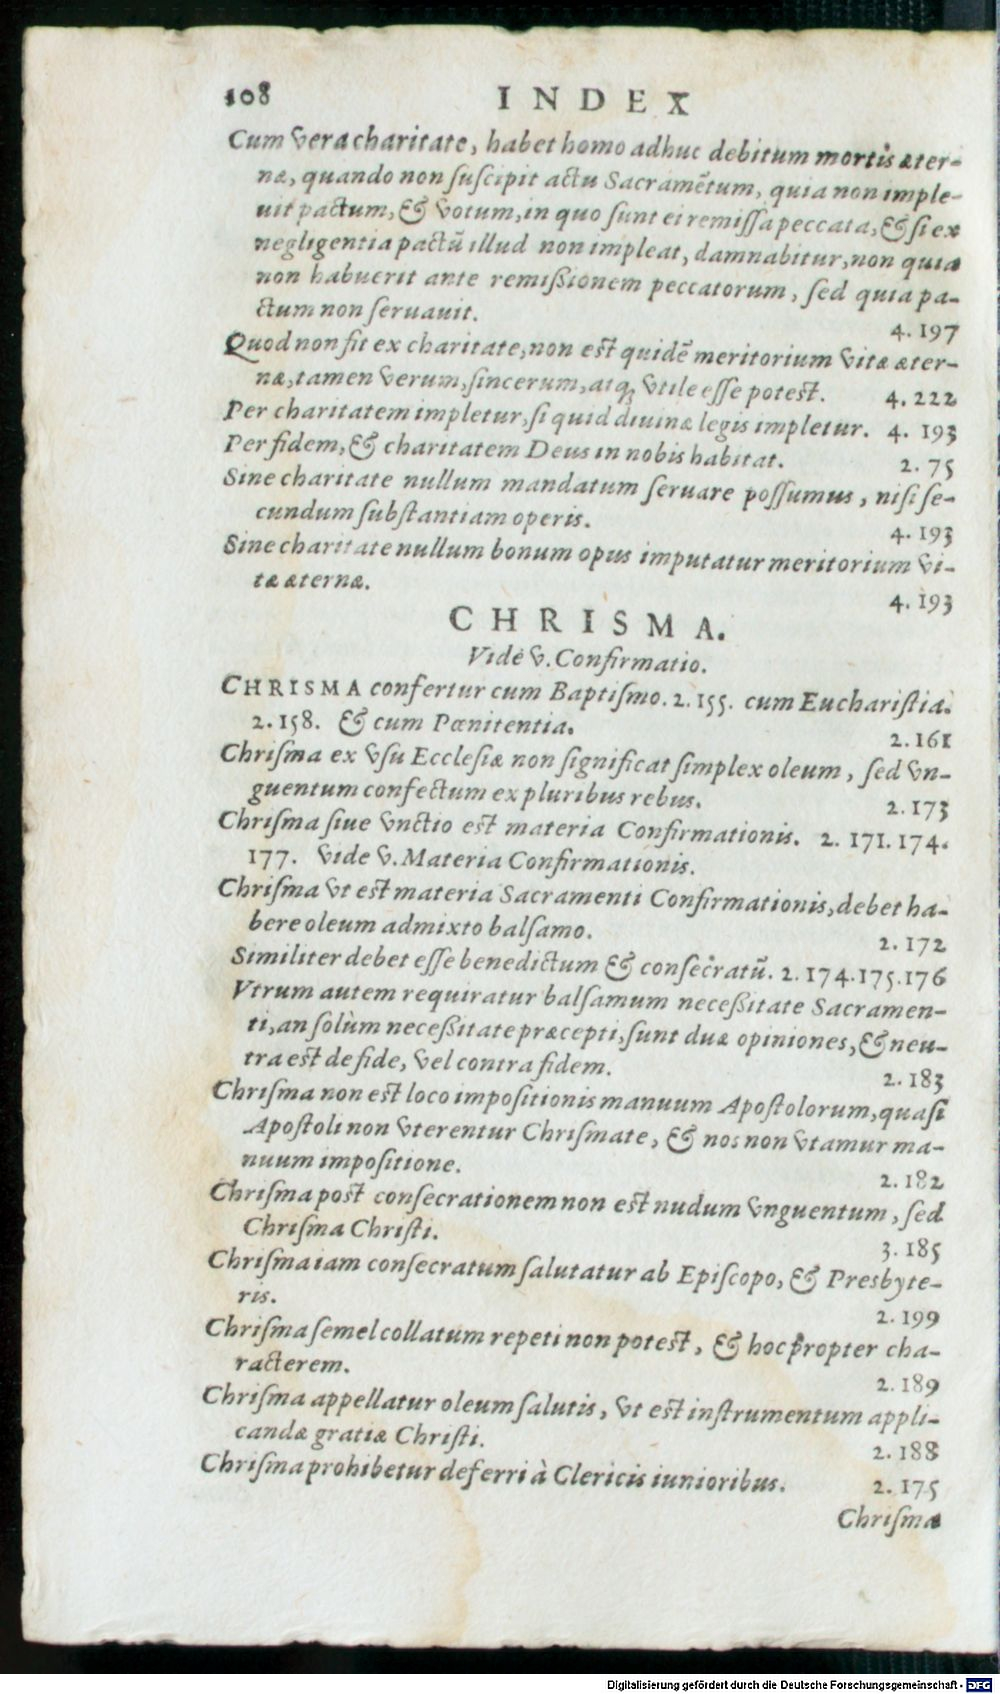 108 INDEX
Cum vera charitate, habet homo adhuc debitum mortis æter-
næ, quando non ſuſcipit actu Sacramẽtum, quia non imple-
uit pactum, & votum, in quo ſunt ei remiſſa peccata, & ſi ex
negligentia pactũ illud non impleat, damnabitur, non quia
non habuerit ante remißionem peccatorum, ſed quia pa-
ctum non ſeruauit. 4. 197
Quod non fit ex charitate, non est quidẽ meritorium vitæ æter-
næ, tamen verum, ſincerum, atq; vtile eſſe potest. 4. 222
Per charitatem impletur, ſi quid diuinæ legis impletur. 4. 193
Per fidem, & charitatem Deus in nobis habitat. 2. 75
Sine charitate nullum mandatum ſeruare poſſumus, niſi ſe-
cundum ſubſtantiam operis. 4. 193
Sine charitate nullum bonum opus imputatur meritorium vi-
tæ æternæ. 4. 193
CHRISMA.
Vide v. Confirmatio.
CHRISMA confertur cum Baptiſmo. 2. 155. cum Euchariſtia.
2. 158. & cum Pœnitentia. 2. 161
Chriſma ex vſu Eccleſiæ non ſignificat ſimplex oleum, ſed vn-
guentum confectum ex pluribus rebus. 2. 173
Chriſma ſiue vnctio est materia Confirmationis. 2. 171. 174.
177. vide v. Materia Confirmationis.
Chriſma vt est materia Sacramenti Confirmationis, debet ha-
bere oleum admixto balſamo. 2. 172
Similiter debet eſſe benedictum & conſecratũ. 2. 174. 175. 176
Vtrum autem requiratur balſamum neceßitate Sacramen-
ti, an ſolùm neceßitate præcepti, ſunt duæ opiniones, & neu-
tra est de fide, vel contra fidem. 2. 183
Chriſma non est loco impoſitionis manuum Apoſtolorum, quaſi
Apoſtoli non vterentur Chriſmate, & nos non vtamur ma-
nuum impoſitione. 2. 182
Chriſma post conſecrationem non est nudum vnguentum, ſed
Chriſma Chriſti. 3. 185
Chriſma iam conſecratum ſalutatur ab Epiſcopo, & Presbyte-
ris. 2. 199
Chriſma ſemel collatum repeti non potest, & hoc propter cha-
racterem. 2. 189
Chriſma appellatur oleum ſalutis, vt est inſtrumentum appli-
candæ gratiæ Chriſti. 2. 188
Chriſma prohibetur deferri à Clericis iunioribus. 2. 175
Chriſma
Digitalisierung gefördert durch die Deutsche Forschungsgemeinschaft - DFG